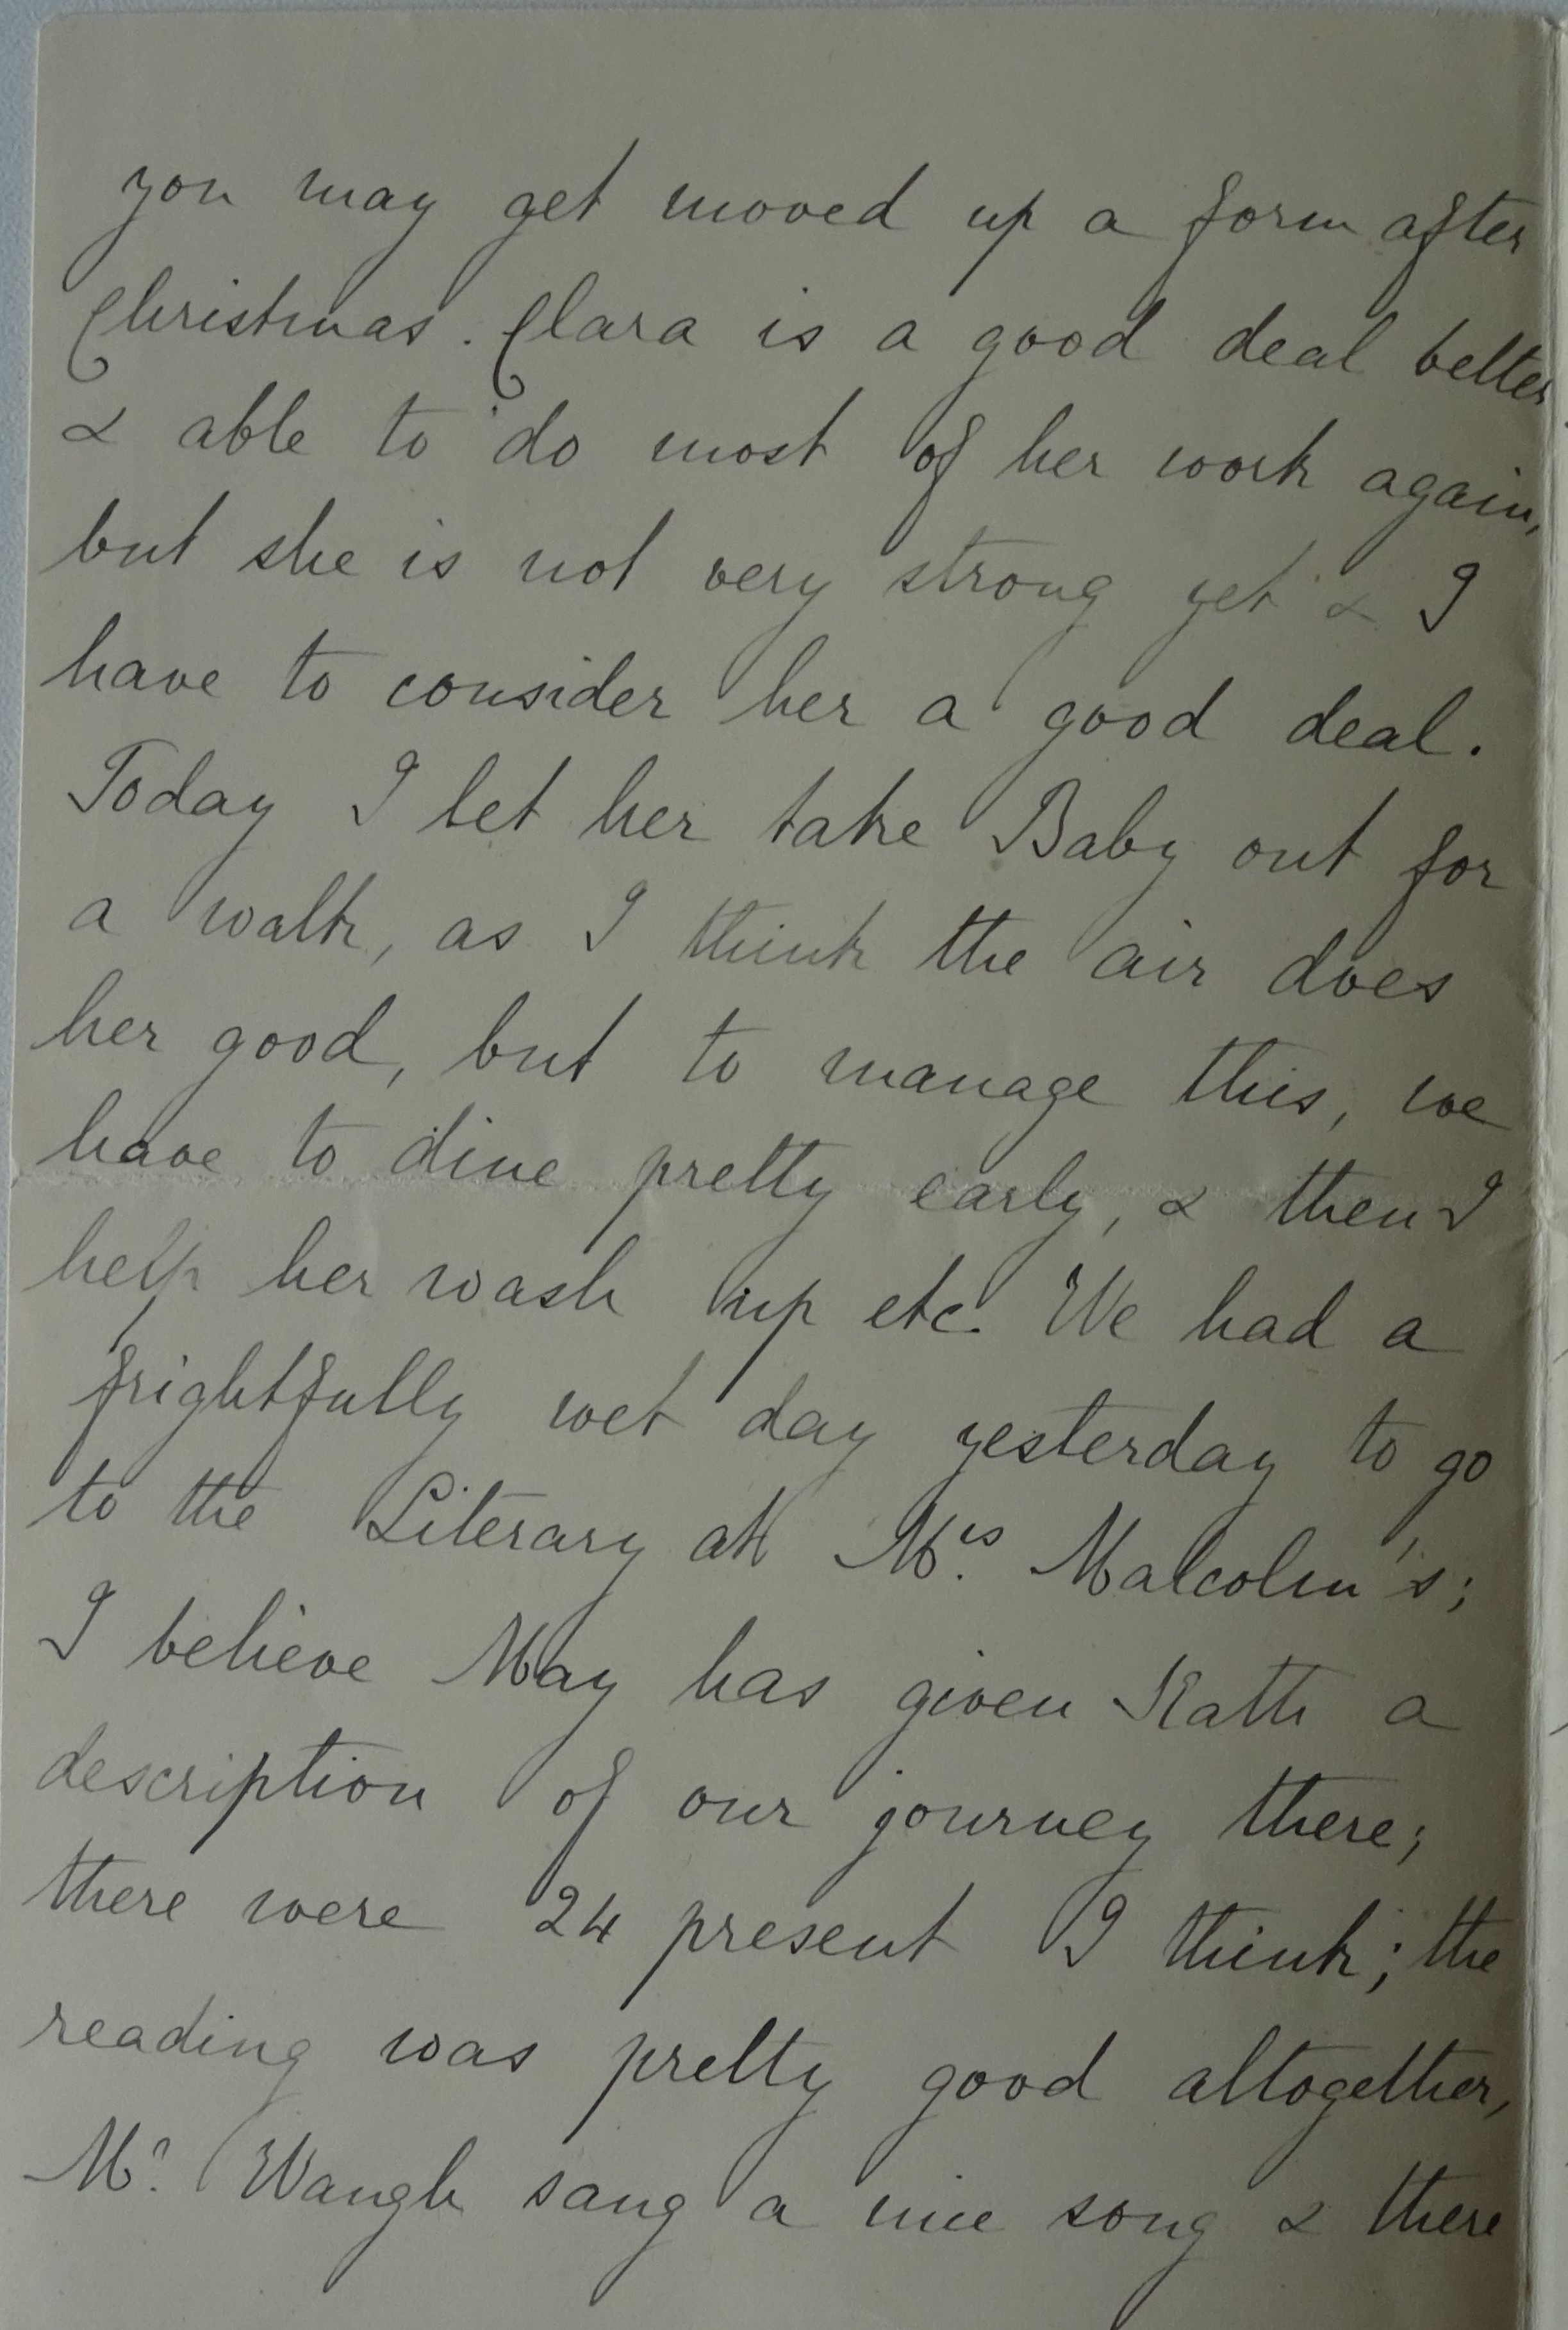 you may get moved up a form after
Christmas. Clara is a good deal better
& able to do most of her work again,
but she is not very strong yet & I
have to consider her a good deal.
Today I let her take Baby out for
a walk, as I think the air does
her good, but to manage this, we
have to dine pretty early, & then I
help her wash up etc. We had a
frightfully wet day yesterday to go
to the Literary at Mrs. Malcolm's;
I believe May has given Kath a
description of our journey there;
there were 24 present I think; the
reading was pretty good altogether,
Mr. Waugh sang a nice song & there